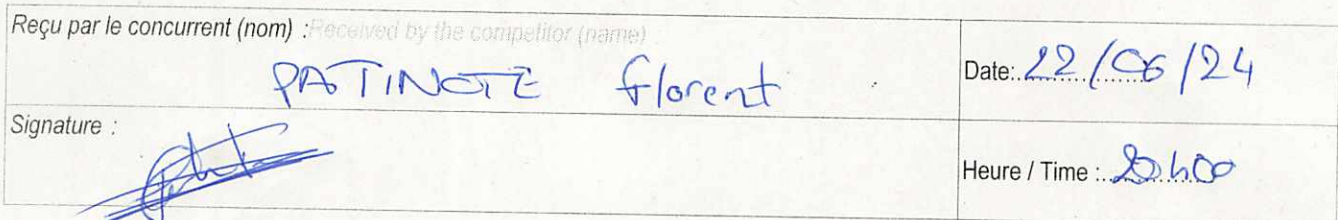 Reçu par le concurrent (nom) :Received by the competitor (name)
PATINOTE florent
Date: 22/06/24
Signature :
Heure / Time : 20h00